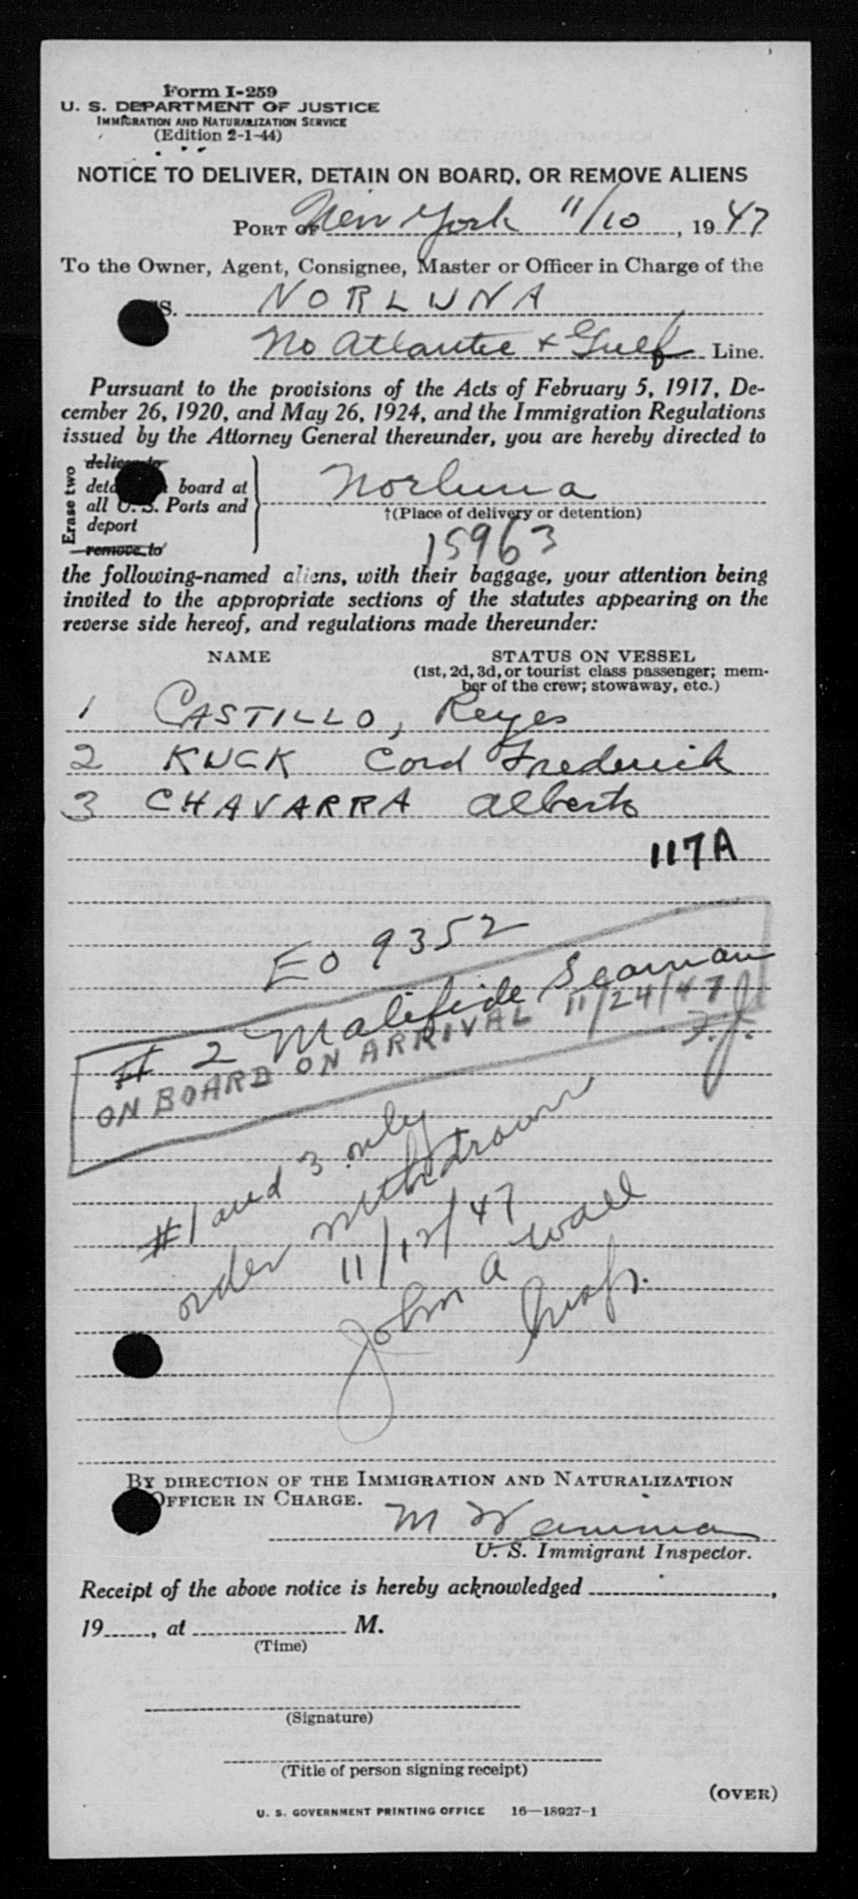 Form I-259
U. S. DEPARTMENT OF JUSTICE
IMMIGRATION AND NATURALIZATION SERVICE
(Edition 2-1-44)
NOTICE TO DELIVER, DETAIN ON BOARD, OR REMOVE ALIENS
PORT OF New York 11/10, 1947
To the Owner, Agent, Consignee, Master or Officer in Charge of the
S. NORLUNA
No Atlantic + Gulf Line.
Pursuant to the provisions of the Acts of February 5, 1917, De-
cember 26, 1920, and May 26, 1924, and the Immigration Regulations
issued by the Attorney General thereunder, you are hereby directed to
Erase two
deliver to
board at
all U. S. Ports and
deport
remove to
Norluna
†(Place of delivery or detention)
15963
the following-named aliens, with their baggage, your attention being
invited to the appropriate sections of the statutes appearing on the
reverse side hereof, and regulations made thereunder:
NAME STATUS ON VESSEL
(1st, 2d, 3d, or tourist class passenger; mem-
ber of the crew; stowaway, etc.)
1 CASTILLO, Reyes
2 KUCK Cord Frederick
3 CHAVARRA Alberto
117A
EO 9352
# 2 Malifide Seaman
ON BOARD ON ARRIVAL 11/24/47
F.J.
#1 and 3 only
order withdrawn
11/12/47
John A Wall
Insp.
BY DIRECTION OF THE IMMIGRATION AND NATURALIZATION
OFFICER IN CHARGE.
M
U. S. Immigrant Inspector.
Receipt of the above notice is hereby acknowledged ,
19 , at M.
(Time)
(Signature)
(Title of person signing receipt)
(OVER)
U. S. GOVERNMENT PRINTING OFFICE 16—18927-1